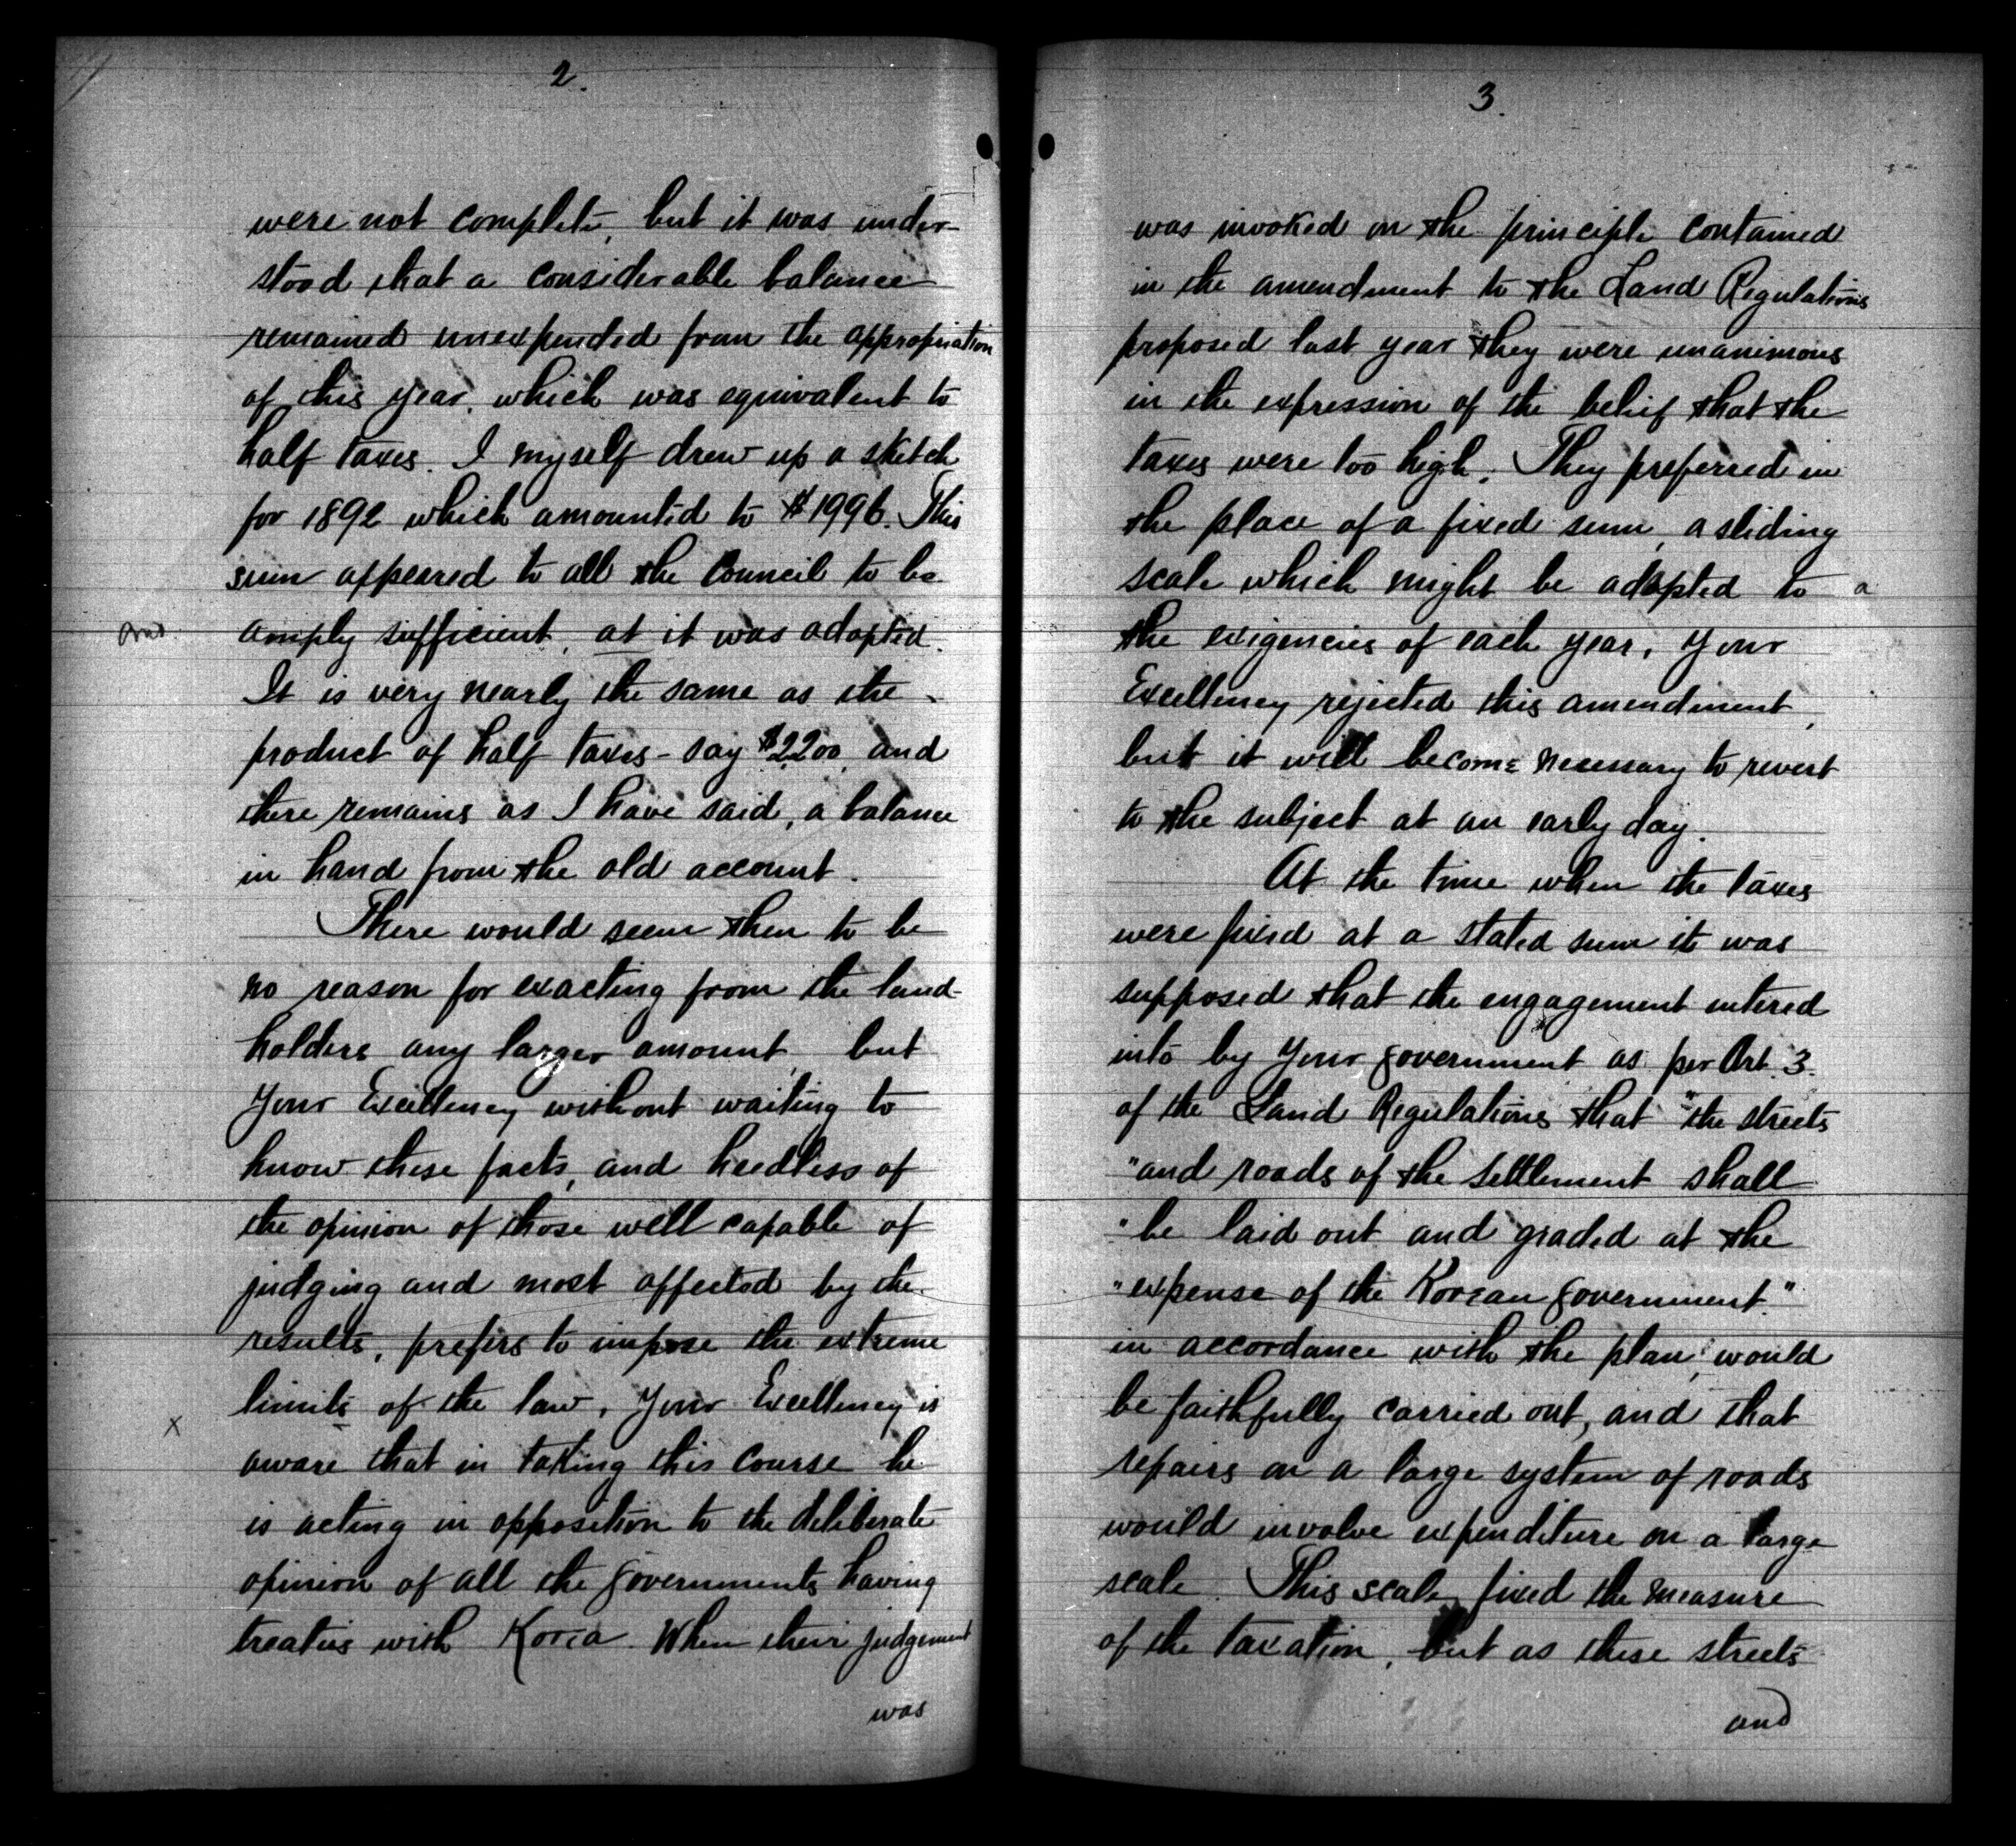 2.
were not complete, but it was under-
stood that a considerable balance
remained unexpended from the appropriation
of this year, which was equivalent to
half taxes. I myself drew up a sketch
for 1892 which amounted to $1996. This
sum appeared to all the Council to be
and amply sufficient, at it was adopted.
It is very nearly the same as the
product of half taxes - say $2200, and
there remains as I have said, a balance
in hand from the old account.
There would seem then to be
no reason for exacting from the land-
holders any larger amount, but
Your Excellency without waiting to
know these facts, and heedless of
the opinion of those well capable of
judging and most affected by the
results, prefers to impose the extreme
limits of the law. Your Excellency is
x aware that in taking this course he
is acting in opposition to the deliberate
opinion of all the governments having
treaties with Korea. When their judgement
was
3.
was invoked on the principle contained
in the amendment to the Land Regulations
proposed last year they were unanimous
in the expression of the belief that the
taxes were too high. They preferred in
the place of a fixed sum, a sliding
scale which might be adopted to a
the exigencies of each year. Your
Excellency rejected this amendment,
but it will become necessary to revert
to the subject at an early day.
At the time when the taxes
were fixed at a stated sum it was
supposed that the engagement entered
into by Your government as per Art. 3.
of the Land Regulations that "the streets
"and roads of the Settlement shall
"be laid out and graded at the
"expense of the Korean government."
in accordance with the plan, would
be faithfully carried out, and that
repairs on a large system of roads
would involve expenditure on a large
scale. This scale fixed the measure
of the taxation, but as these streets
and